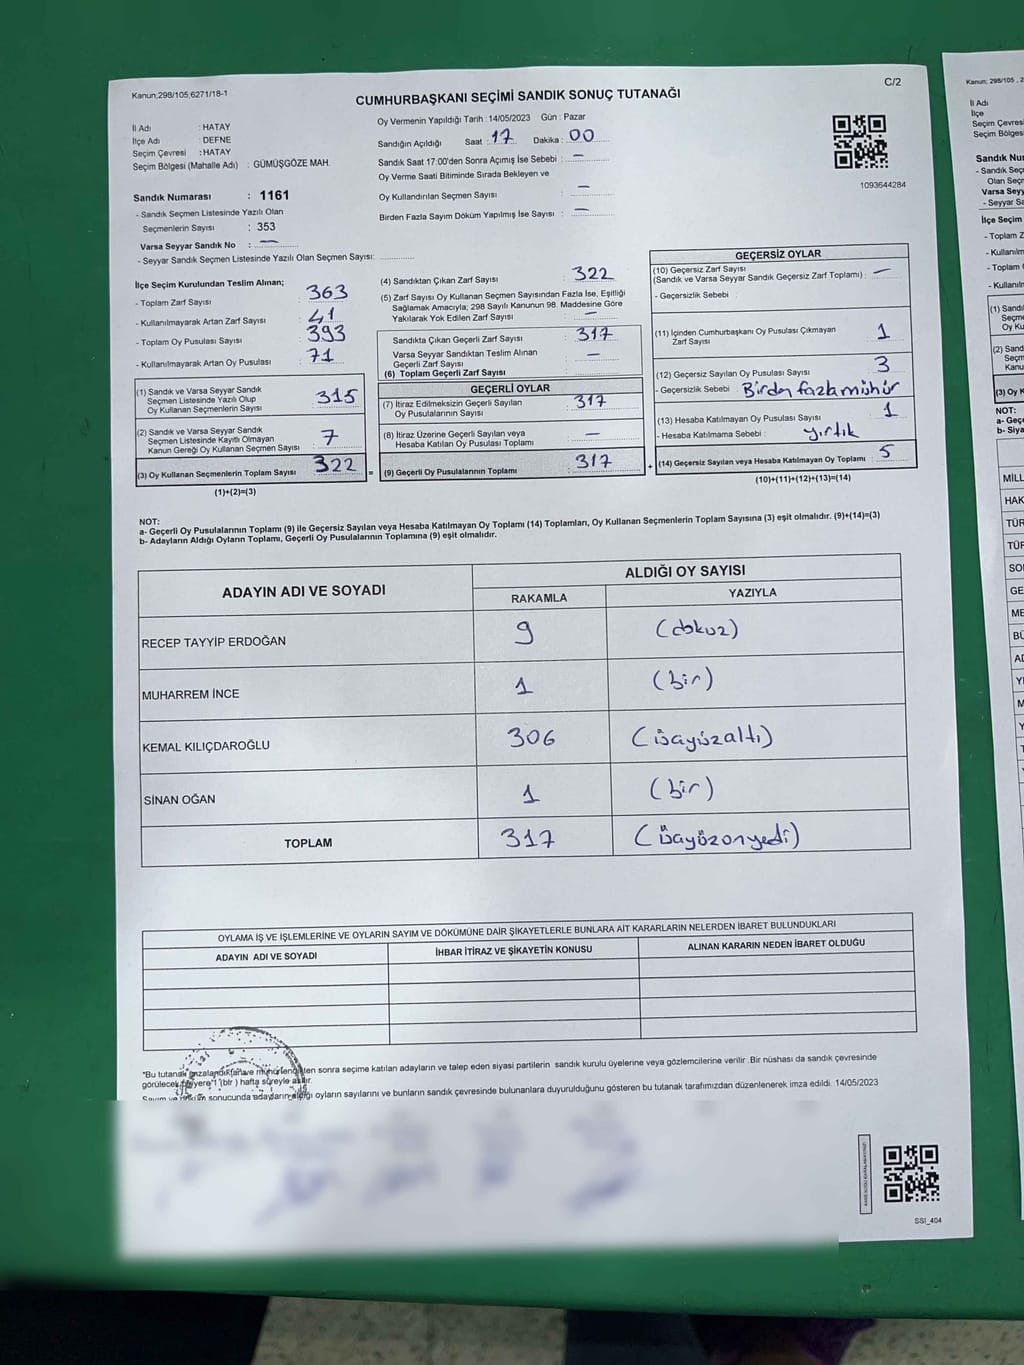 Kanun;298/105;6271/18-1
C/2
CUMHURBAŞKANI SEÇİMİ SANDIK SONUÇ TUTANAĞI
İl Adı : HATAY
İlçe Adı : DEFNE
Seçim Çevresi : HATAY
Seçim Bölgesi (Mahalle Adı) : GÜMÜŞGÖZE MAH.
Oy Vermenin Yapıldığı Tarih :14/05/2023 Gün : Pazar
Sandığın Açıldığı Saat : 17 Dakika : 00
Sandık Saat 17:00'den Sonra Açımış İse Sebebi : —
Oy Verme Saati Bitiminde Sırada Bekleyen ve
Oy Kullandırılan Seçmen Sayısı —
Birden Fazla Sayım Döküm Yapılmış İse Sayısı : —
1093644284
Sandık Numarası : 1161
- Sandık Seçmen Listesinde Yazılı Olan
Seçmenlerin Sayısı : 353
Varsa Seyyar Sandık No : —
- Seyyar Sandık Seçmen Listesinde Yazılı Olan Seçmen Sayısı:
İlçe Seçim Kurulundan Teslim Alınan;
- Toplam Zarf Sayısı 363
- Kullanılmayarak Artan Zarf Sayısı 41
- Toplam Oy Pusulası Sayısı 393
- Kullanılmayarak Artan Oy Pusulası 71
(1) Sandık ve Varsa Seyyar Sandık
Seçmen Listesinde Yazılı Olup
Oy Kullanan Seçmenlerin Sayısı 315
(2) Sandık ve Varsa Seyyar Sandık
Seçmen Listesinde Kayıtlı Olmayan
Kanun Gereği Oy Kullanan Seçmen Sayısı 7
(3) Oy Kullanan Seçmenlerin Toplam Sayısı 322 =
(1)+(2)=(3)
(4) Sandıktan Çıkan Zarf Sayısı : 322
(5) Zarf Sayısı Oy Kullanan Seçmen Sayısından Fazla İse, Eşitliği
Sağlamak Amacıyla; 298 Sayılı Kanunun 98. Maddesine Göre
Yakılarak Yok Edilen Zarf Sayısı : —
Sandıkta Çıkan Geçerli Zarf Sayısı : 317
Varsa Seyyar Sandıktan Teslim Alınan
Geçerli Zarf Sayısı —
(6) Toplam Geçerli Zarf Sayısı
GEÇERLİ OYLAR
(7) İtiraz Edilmeksizin Geçerli Sayılan
Oy Pusulalarının Sayısı : 317
(8) İtiraz Üzerine Geçerli Sayılan veya
Hesaba Katılan Oy Pusulası Toplamı : —
(9) Geçerli Oy Pusulalarının Toplamı : 317 +
GEÇERSİZ OYLAR
(10) Geçersiz Zarf Sayısı
(Sandık ve Varsa Seyyar Sandık Geçersiz Zarf Toplamı) : —
- Geçersizlik Sebebi :
(11) İçinden Cumhurbaşkanı Oy Pusulası Çıkmayan
Zarf Sayısı 1
(12) Geçersiz Sayılan Oy Pusulası Sayısı : 3
- Geçersizlik Sebebi : Birden fazla mühür
(13) Hesaba Katılmayan Oy Pusulası Sayısı : 1
- Hesaba Katılmama Sebebi : yırtık
(14) Geçersiz Sayılan veya Hesaba Katılmayan Oy Toplamı : 5
(10)+(11)+(12)+(13)=(14)
NOT:
a- Geçerli Oy Pusulalarının Toplamı (9) ile Geçersiz Sayılan veya Hesaba Katılmayan Oy Toplamı (14) Toplamları, Oy Kullanan Seçmenlerin Toplam Sayısına (3) eşit olmalıdır. (9)+(14)=(3)
b- Adayların Aldığı Oyların Toplamı, Geçerli Oy Pusulalarının Toplamına (9) eşit olmalıdır.
ADAYIN ADI VE SOYADI ALDIĞI OY SAYISI
RAKAMLA YAZIYLA
RECEP TAYYİP ERDOĞAN 9 (dokuz)
MUHARREM İNCE 1 (bir)
KEMAL KILIÇDAROĞLU 306 (üçyüzaltı)
SİNAN OĞAN 1 (bir)
TOPLAM 317 (üçyüzonyedi)
OYLAMA İŞ VE İŞLEMLERİNE VE OYLARIN SAYIM VE DÖKÜMÜNE DAİR ŞİKAYETLERLE BUNLARA AİT KARARLARIN NELERDEN İBARET BULUNDUKLARI
ADAYIN ADI VE SOYADI İHBAR İTİRAZ VE ŞİKAYETİN KONUSU ALINAN KARARIN NEDEN İBARET OLDUĞU
"Bu tutanak imzalandıktan ve mühürlendikten sonra seçime katılan adayların ve talep eden siyasi partilerin sandık kurulu üyelerine veya gözlemcilerine verilir .Bir nüshası da sandık çevresinde
görülecek bir yere 1 (bir ) hafta süreyle asılır.
Sayım ve döküm sonucunda adayların aldığı oyların sayılarını ve bunların sandık çevresinde bulunanlara duyurulduğunu gösteren bu tutanak tarafımızdan düzenlenerek imza edildi. 14/05/2023
SSI_404
Kanun; 298/105 , 2
İl Adı
İlçe
Seçim Çevresi
Seçim Bölges
Sandık Nur
- Sandık Seç
Olan Seçr
Varsa Seyy
- Seyyar Sa
İlçe Seçim
- Toplam Z
- Kullanılm
- Toplam
- Kullanılm
(1) Sandı
Seçme
Oy Ku
(2) Sand
Seçm
Kanu
(3) Oy K
NOT:
a- Geçe
b- Siya
MİLL
HAK
TÜR
TÜF
SOI
GE
ME
BÜ
AD
Yİ
M
Y